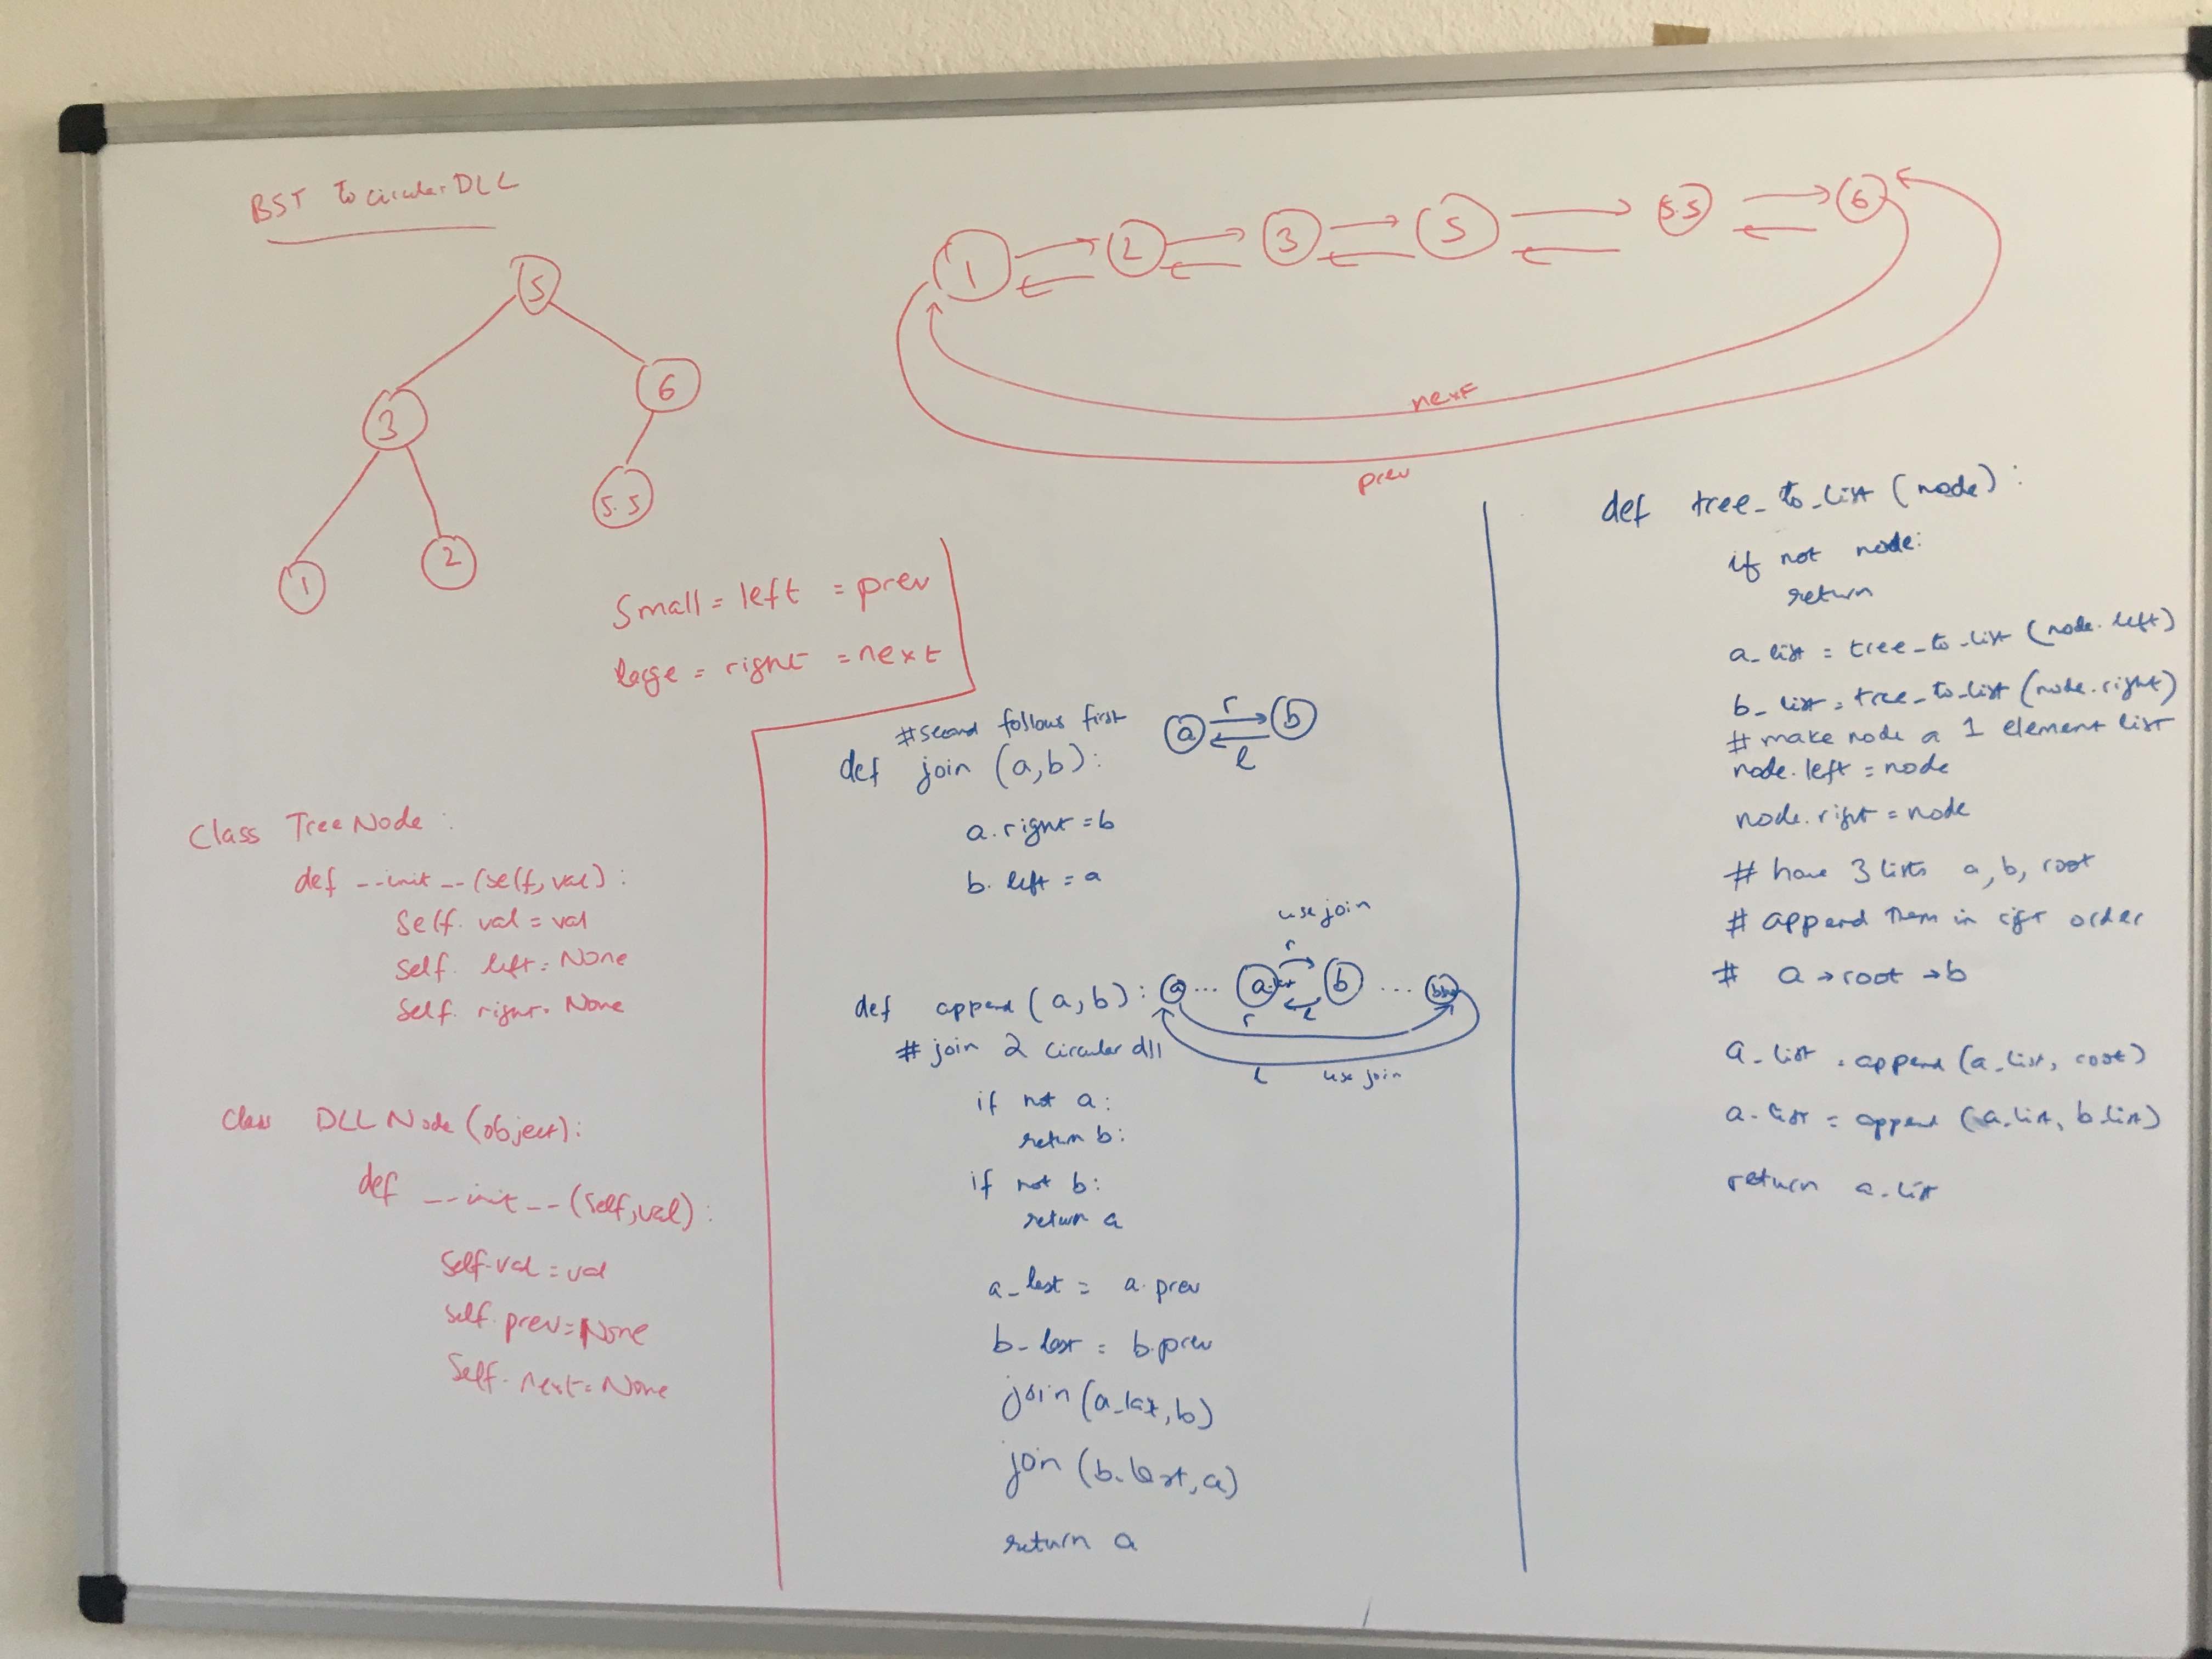 BST To circular DLL
5
3
6
1
2
5.5
1
2
3
5
5.5
6
next
prev
Small = left = prev
large = right = next
Class TreeNode:
def __init__(self, val):
Self. val = val
Self. left = None
Self. right = None
Class DLLNode(object):
def __init__(self, val):
Self.val = val
Self.prev = None
Self.next = None
#second follows first
def join (a,b):
a
r
b
l
a.right = b
b.left = a
use join
def append (a,b):
a ...
r
b ...
r
l
# join 2 circular dll
l
use join
if not a:
return b:
if not b:
return a
a_last = a.prev
b_last = b.prev
join (a_last, b)
join (b_last, a)
return a
def tree_to_list (node):
if not node:
return
a_list = tree_to_list (node.left)
b_list = tree_to_list (node.right)
# make node a 1 element list
node.left = node
node.right = node
# have 3 lists a, b, root
# append them in order
# a → root → b
a_list = append (a_list, root)
a_list = append (a_list, b_list)
return a_list